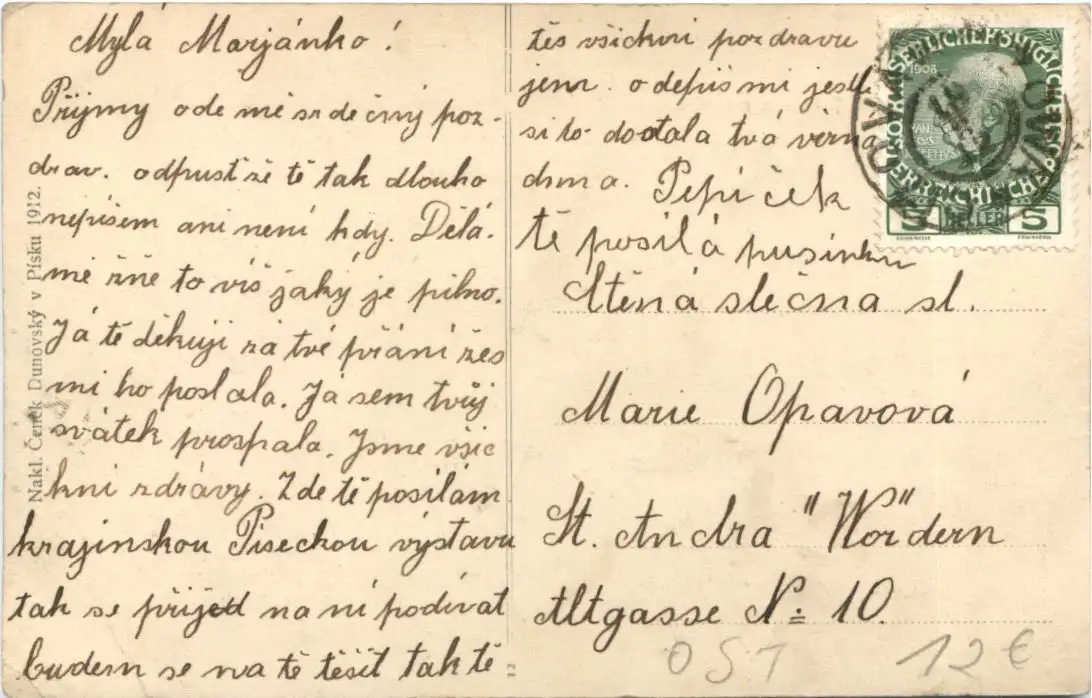 Mylá Marjánko!
Příjmy ode mě srdečný poz-
drav. odpusť žě tě tak dlouho
nepíšem ani není kdy. Dělá-
mě žně to víš jaký je pilno.
Já tě děkuji za tvé přání žes
mi ho poslala. Já sem tvůj
svátek prospala. Jsme všic
kni zdrávy. Zde tě posílám
krajinskou Píseckou výstavu
tak se přijed na ní podívat
budem se na tě těšit tak tě =
těs všickni pozdravu
jem. odepiš mi jestli
si to dostala tvá věrná
Pepíček
tě posílá pusinku
Ctěná slečna sl.
Marie Opavová
St. Andra "Wördern"
Altgasse No 10.
OST 12€
Nakl. Čeněk Dunovský v Písku 1912.
KAISERLICHE KÖNIGLICHE
ÖSTERREICHISCHE POST
1908
5 HELLER 5